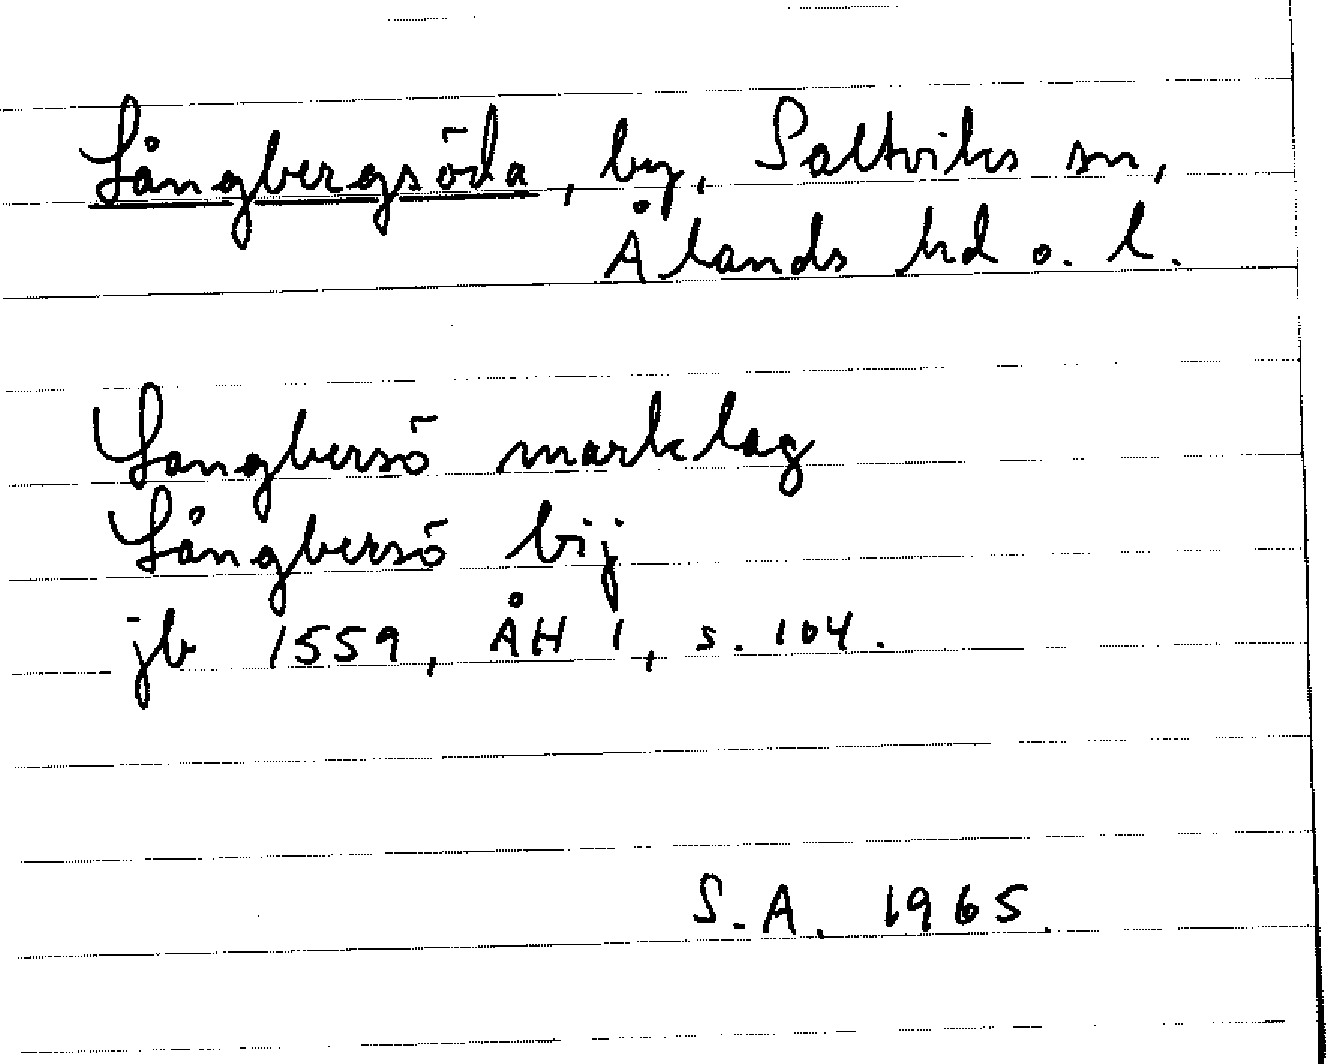 Långbergsöda, by, Saltviks sn,
Ålands hd o. l.
Langbersö marklag
Långbersö bij
jb 1559, ÅH 1, s. 104.
S.A. 1965.